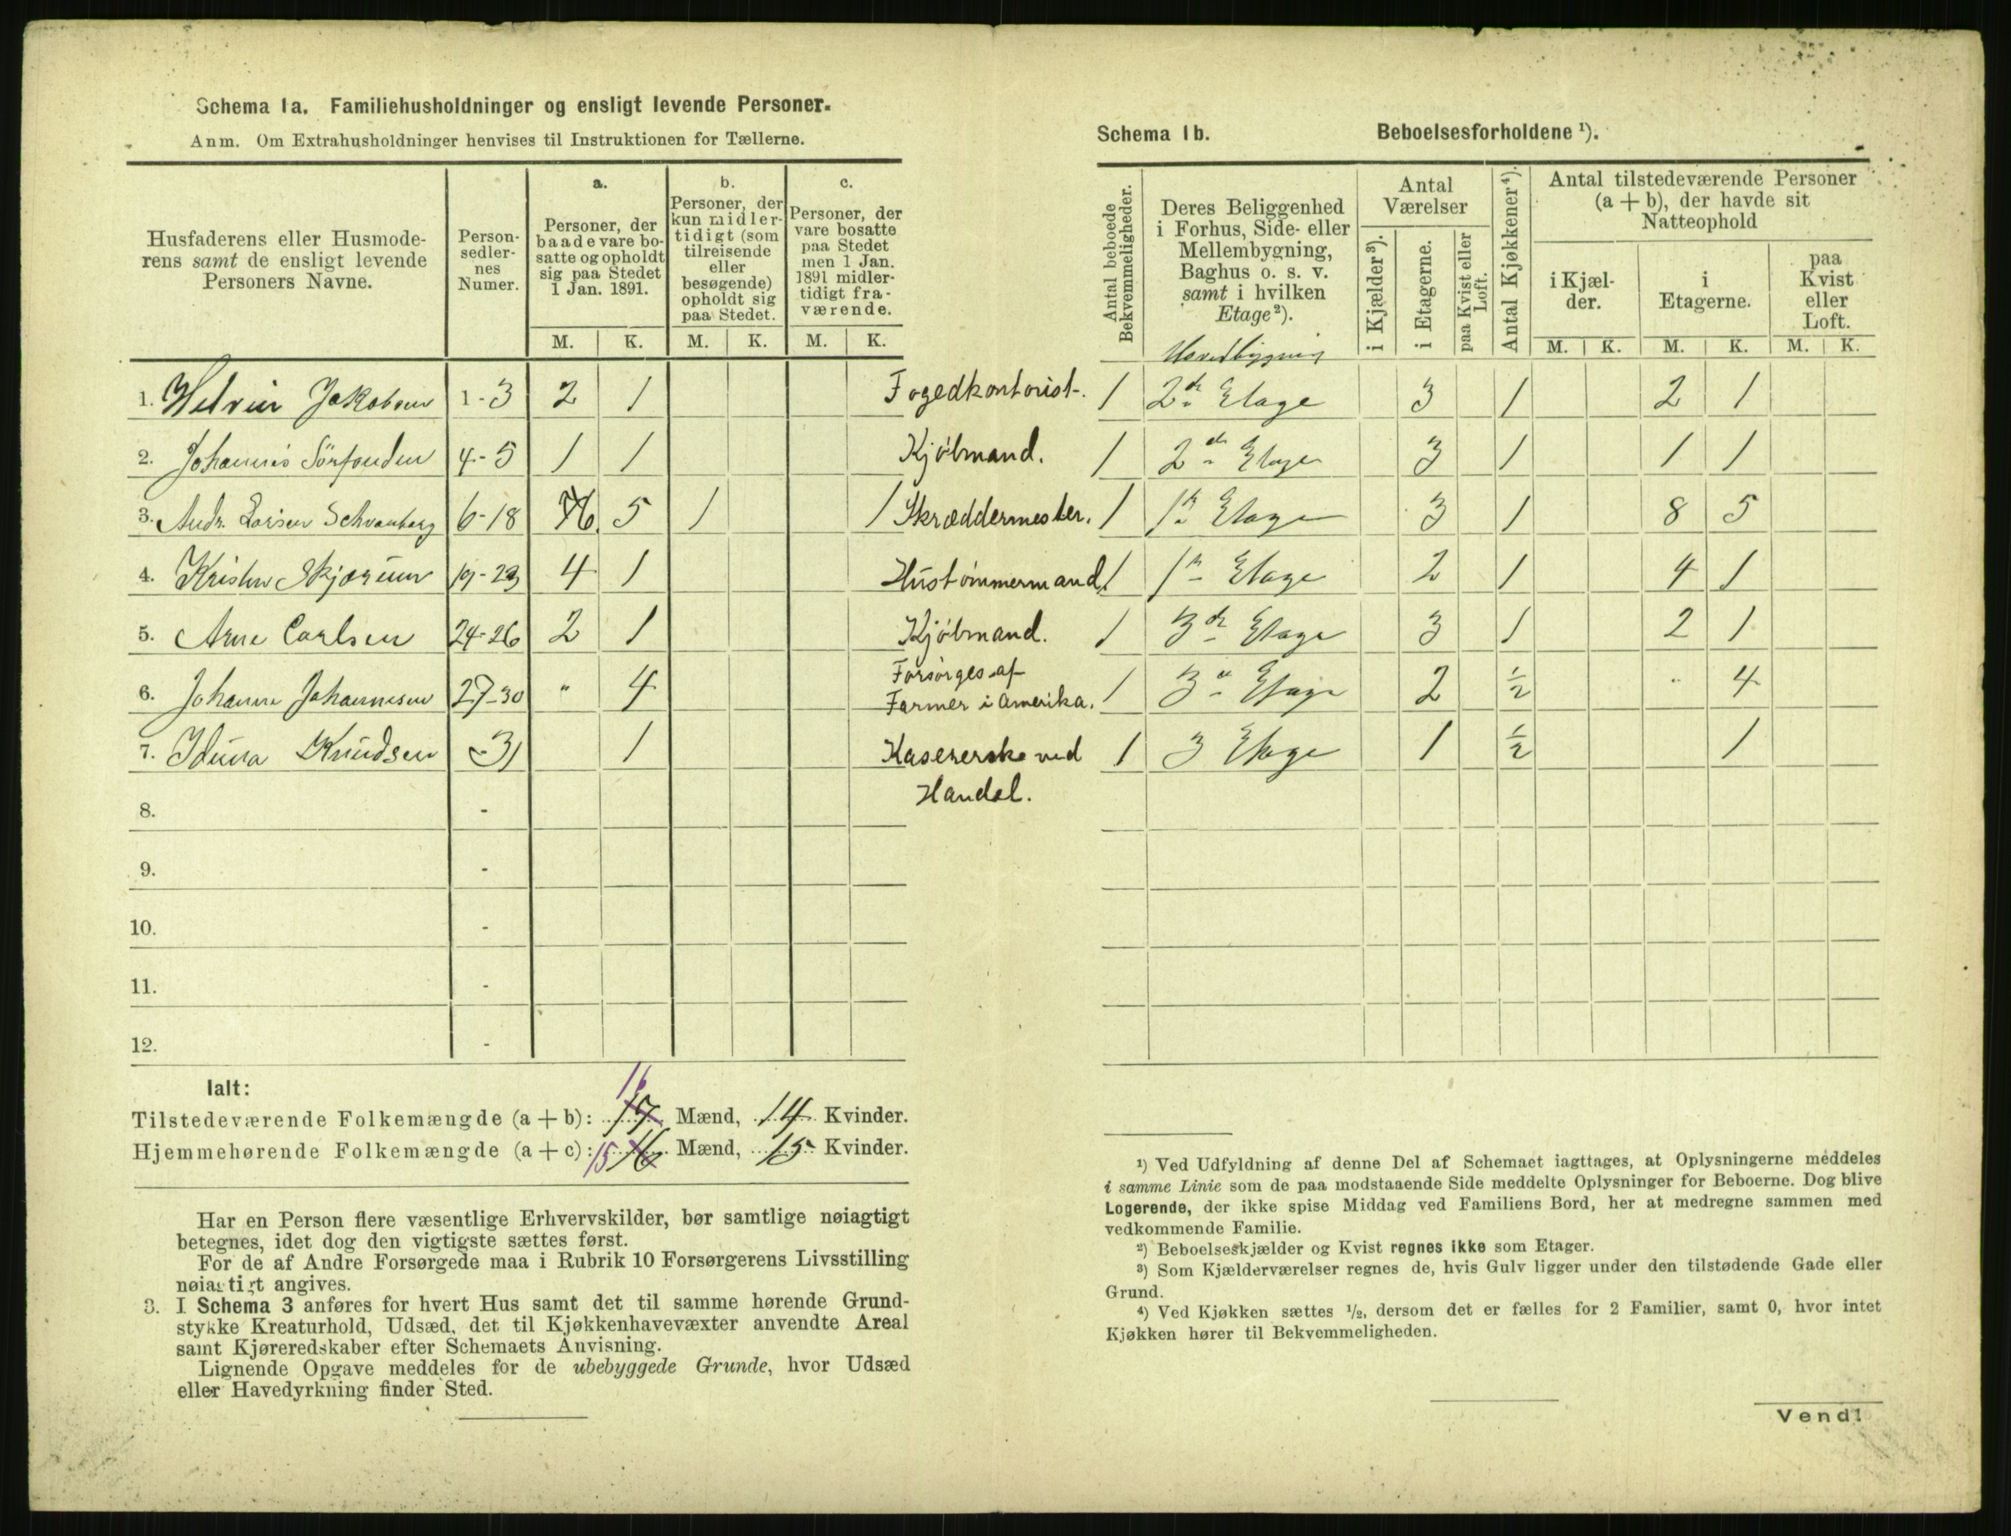 Schema 1a. Familiehusholdninger og ensligt levende Personer.
Anm. Om Extrahusholdninger henvises til Instruktionen for Tællerne.
Husfaderens eller Husmoderens samt de ensligt levende Personers Navne.
Personsedlernes Numer.
a.
Personer, der baade vare bosatte og opholdt sig paa Stedet 1 Jan. 1891.
b.
Personer, der kun midlertidigt (som tilreisende eller besøgende) opholdt sig paa Stedet.
c.
Personer, der vare bosatte paa Stedet men 1 Jan. 1891 midlertidigt fraværende.
M. K. M. K. M. K.
1. Jakobsen 1-3 2 1 Fogedkontorist.
2. Johannes Sørfonden 4-5 1 1 Kjøbmand.
3. Andr. Larsen Schvanberg 6-18 6. 5 1 1 Skræddermester.
4. Kristen Skjærum 19-23 4 1 Hustømmermand
5. Arne Carlsen 24-26 2 1 Kjøbmand.
6. Johanne Johannesen 27-30 " 4 Forsørges af
Farmer i Amerika.
7. Iduna Knudsen -31 1 Kasererske ved
Handel.
8. -
9. -
10. -
11. -
12. -
Ialt:
16
Tilstedeværende Folkemængde (a + b): 17 Mænd, 14 Kvinder.
Hjemmehørende Folkemængde (a + c): 15 16 Mænd, 15 Kvinder.
Har en Person flere væsentlige Erhvervskilder, bør samtlige nøiagtigt
betegnes, idet dog den vigtigste sættes først.
For de af Andre Forsørgede maa i Rubrik 10 Forsørgerens Livsstilling
nøiagtigt angives.
3. I Schema 3 anføres for hvert Hus samt det til samme hørende Grund-
stykke Kreaturhold, Udsæd, det til Kjøkkenhavevæxter anvendte Areal
samt Kjøreredskaber efter Schemaets Anvisning.
Lignende Opgave meddeles for de ubebyggede Grunde, hvor Udsæd
eller Havedyrkning finder Sted.
Schema 1b. Beboelsesforholdene ¹).
Antal beboede Bekvemmeligheder.
Deres Beliggenhed i Forhus, Side- eller Mellembygning, Baghus o. s. v. samt i hvilken Etage²).
Antal Værelser
i Kjælder³).
i Etagerne.
paa Kvist eller Loft.
Antal Kjøkkener⁴).
Antal tilstedeværende Personer (a + b), der havde sit Natteophold
i Kjælder.
i Etagerne.
paa Kvist eller Loft.
M. K. M. K. M. K.
Hovedbygning
1 2de Etage 3 1 2 1
1 2de Etage 3 1 1 1
1 1te Etage 3 1 8 5
1 1te Etage 2 1 4 1
1 3de Etage 3 1 2 1
1 3de Etage 2 1/2 " 4
1 3 Etage 1 1/2 1
¹) Ved Udfyldning af denne Del af Schemaet iagttages, at Oplysningerne meddeles
i samme Linie som de paa modstaaende Side meddelte Oplysninger for Beboerne. Dog blive
Logerende, der ikke spise Middag ved Familiens Bord, her at medregne sammen med
vedkommende Familie.
²) Beboelseskjælder og Kvist regnes ikke som Etager.
³) Som Kjælderværelser regnes de, hvis Gulv ligger under den tilstødende Gade eller
Grund.
⁴) Ved Kjøkken sættes ½, dersom det er fælles for 2 Familier, samt 0, hvor intet
Kjøkken hører til Bekvemmeligheden.
Vend!